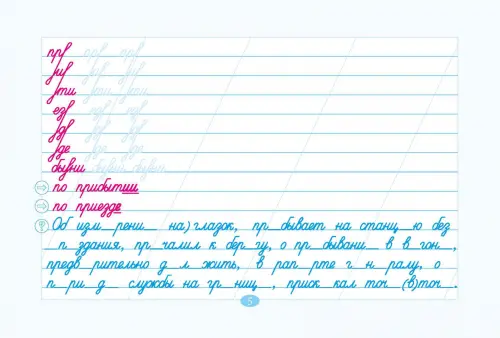 при при при
ји ји ји
јти јти јти
езј езј езј
јдј јдј јдј
јде јде јде
бывши бывши бывши
по прибытии
по приезде
Об изм_рени_ на)глазок, пр_бывает на станц_ю без
_п_здания, пр_чалил к бер_гу, о пр_бывани_ в в_гон_,
предв_рительно д_л_жить, в рап_рте г_н_ралу, о
п_ри_д_ службы на гр_ниц_, приск_кал точ_(в)точ_.
5